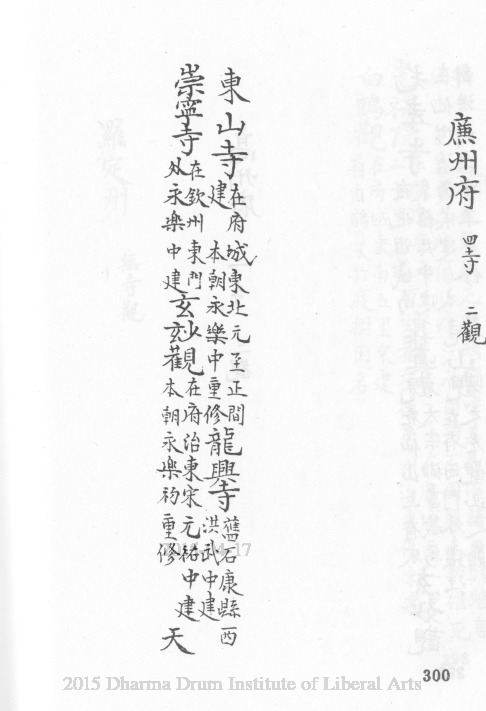 廉州府 四寺 二觀
東山寺 在府城東北元至正間建 本朝永樂中重修 龍興寺 舊石康縣西洪武中建
崇寧寺 在欽州東門外永樂中建 玄妙觀 在府治東宋元祐中建本朝永樂初重修 天
300
2015 Dharma Drum Institute of Liberal Arts